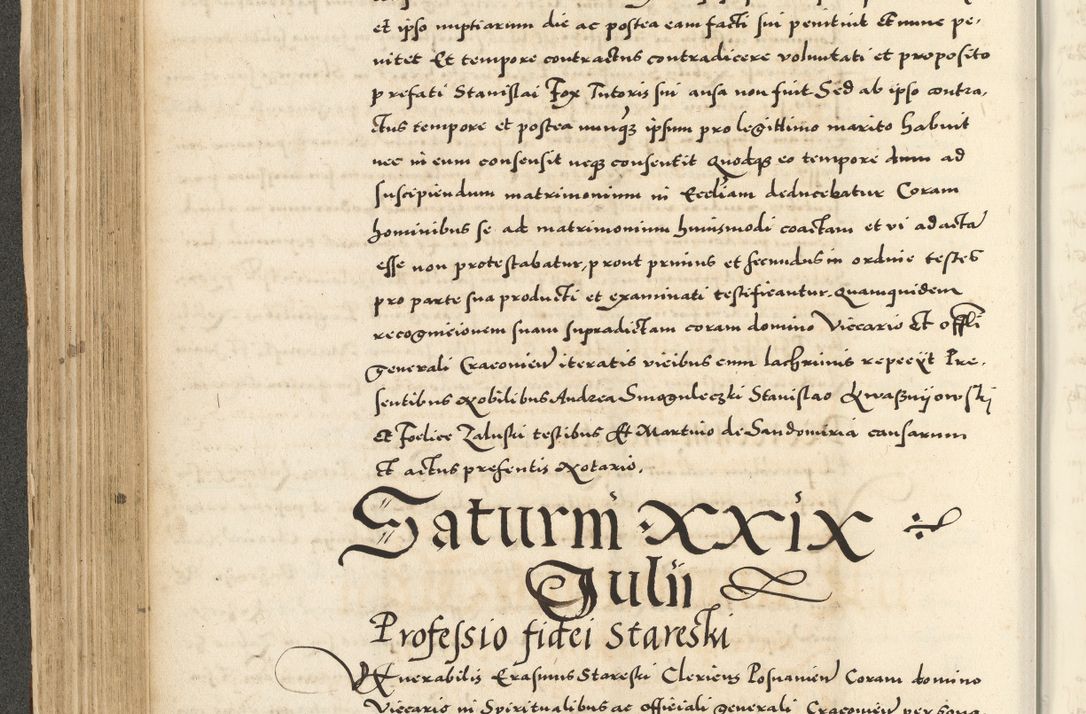 et ipso nuptiarum die ac postea eam facti sui penituit Et nunc pe-
nitet Et tempore contractus contradicere voluntati et proposito
prefati Stanislai Fox Tutoris sui ausa non fuit Sed ab ipso contra-
ctus tempore et postea nunq̃ȝ ipsum pro legittimo marito habuit
nec in eum consensit neqȝ consentit Quodqȝ eo tempore dum ad
suscipiendum matrimonium in Eccl̃iam deducebatur Coram
hominibus se ad matrimonium huiusmodi coactam et vi adacta
esse non protestabatur, prout primus et secundus in ordine testes
pro parte sua producti et examinati testificantur. Quamquidem
recognicionem suam supradictam coram domino Viccario Et offl̃i
generali Cracovien̄ iteratis vicibus cum lachrimis repeẏt Pre-
sentibus Nobilibus Andrea Smoguleczki Stanislao Kwasznijowskj
Et Foelice Zaluski testibus Et Martino de Sandomiria causarum
Et actus presentis Notario.
Saturni XXIX
Julii
Professio fidei Stareski
Venerabilis Erasmus Stareski Clericus Posnanien̄ Coram domino
Viccario in Spiritualibus ac officiali generali Cracovien̄ persona-